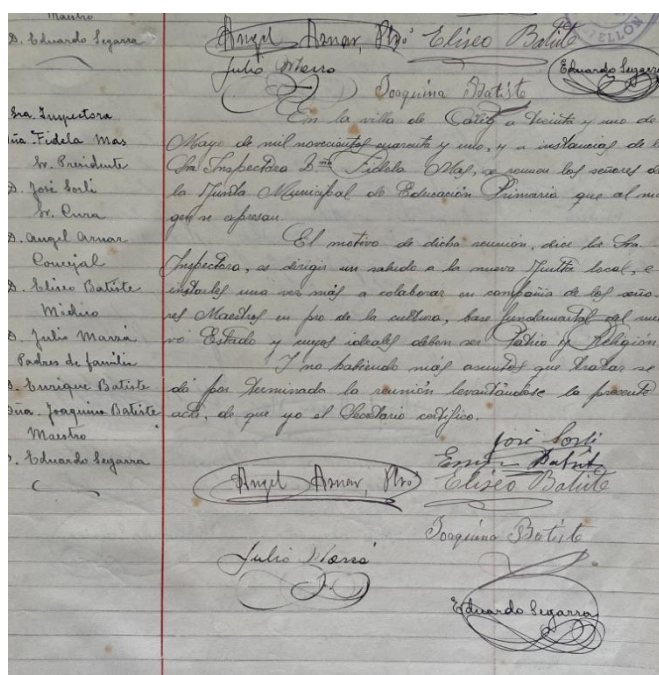 Maestro
D. Eduardo Segarra
CASTELLON
Angel Aznar, Pbró
Eliseo Batiste
Julio Marzá
Eduardo Segarra
Joaquina Batiste
Sra. Inspectora
Dña Fidela Mas
Sr. Presidente
D. José Sorlí
Sr. Cura
D. Angel Aznar
Concejal
D. Eliseo Batiste
Médico
D. Julio Marzá
Padres de familia
D. Enrique Batiste
Dna. Joaquina Batiste
Maestro
D. Eduardo Segarra
En la villa de Catí, a treinta y uno de
Mayo de mil novecientos cuarenta y uno, y a instancias de l
Sra Inspectora Dña Fidela Mas, se reunen los señores de
la Junta Municipal de Educación Primaria que al mar
gen se expresan.
El motivo de dicha reunión, dice la Sra.
Inspectora, es dirigir un saludo a la nueva Junta local, e
instarles una vez más a colaborar en compañía de los seño-
res Maestros en pro de la cultura, base fundamental del nue
vo Estado y cuyos ideales deben ser Patria y Religión.
Y no habiendo más asuntos que tratar se
dá por terminada la reunión levantándose la presente
acta, de que yo el Secretario certifico.
José Sorlí
Enrique Batiste
Angel Aznar, Pbró
Eliseo Batiste
Joaquina Batiste
Julio Marzá
Eduardo Segarra